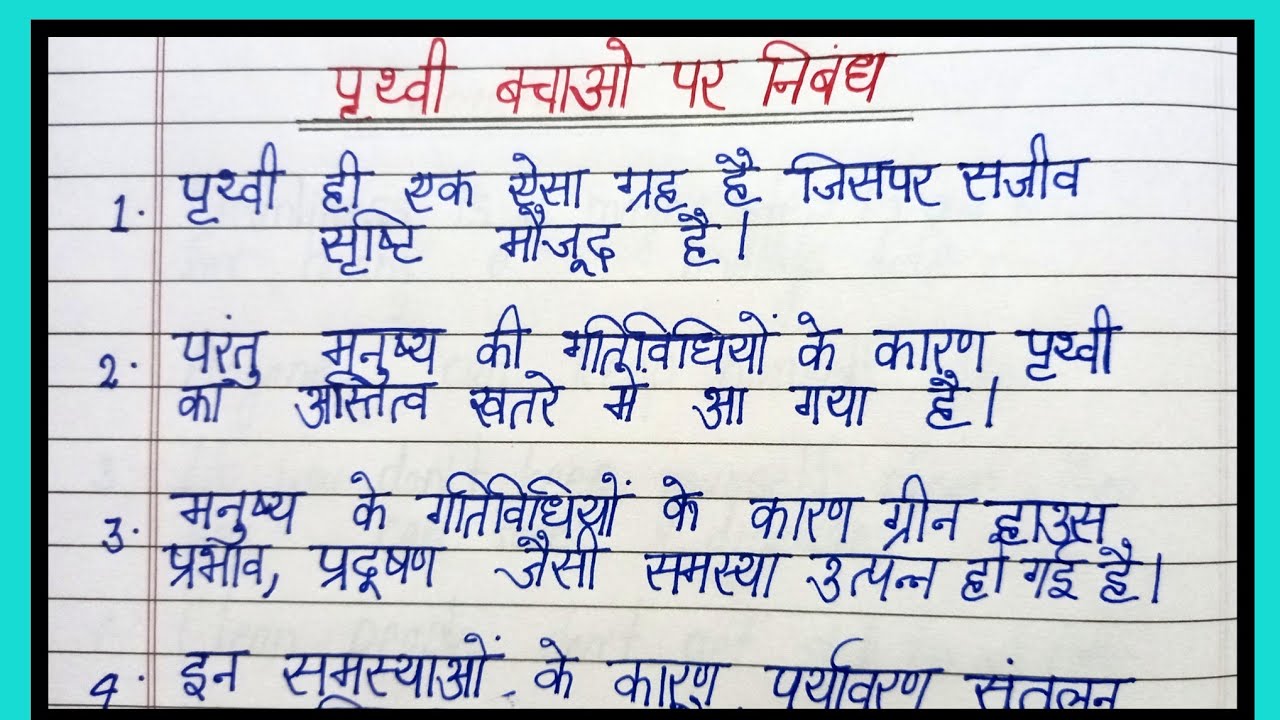 पृथ्वी बचाओ पर निबंध
1. पृथ्वी ही एक ऐसा ग्रह है जिसपर सजीव
सृष्टि मौजूद है।
2. परंतु मनुष्य की गतिविधियों के कारण पृथ्वी
का अस्तित्व खतरे में आ गया है।
3. मनुष्य के गतिविधियों के कारण ग्रीन हाउस
प्रभाव, प्रदूषण जैसी समस्या उत्पन्न हो गई है।
4. इन समस्याओं के कारण पर्यावरण संतुलन